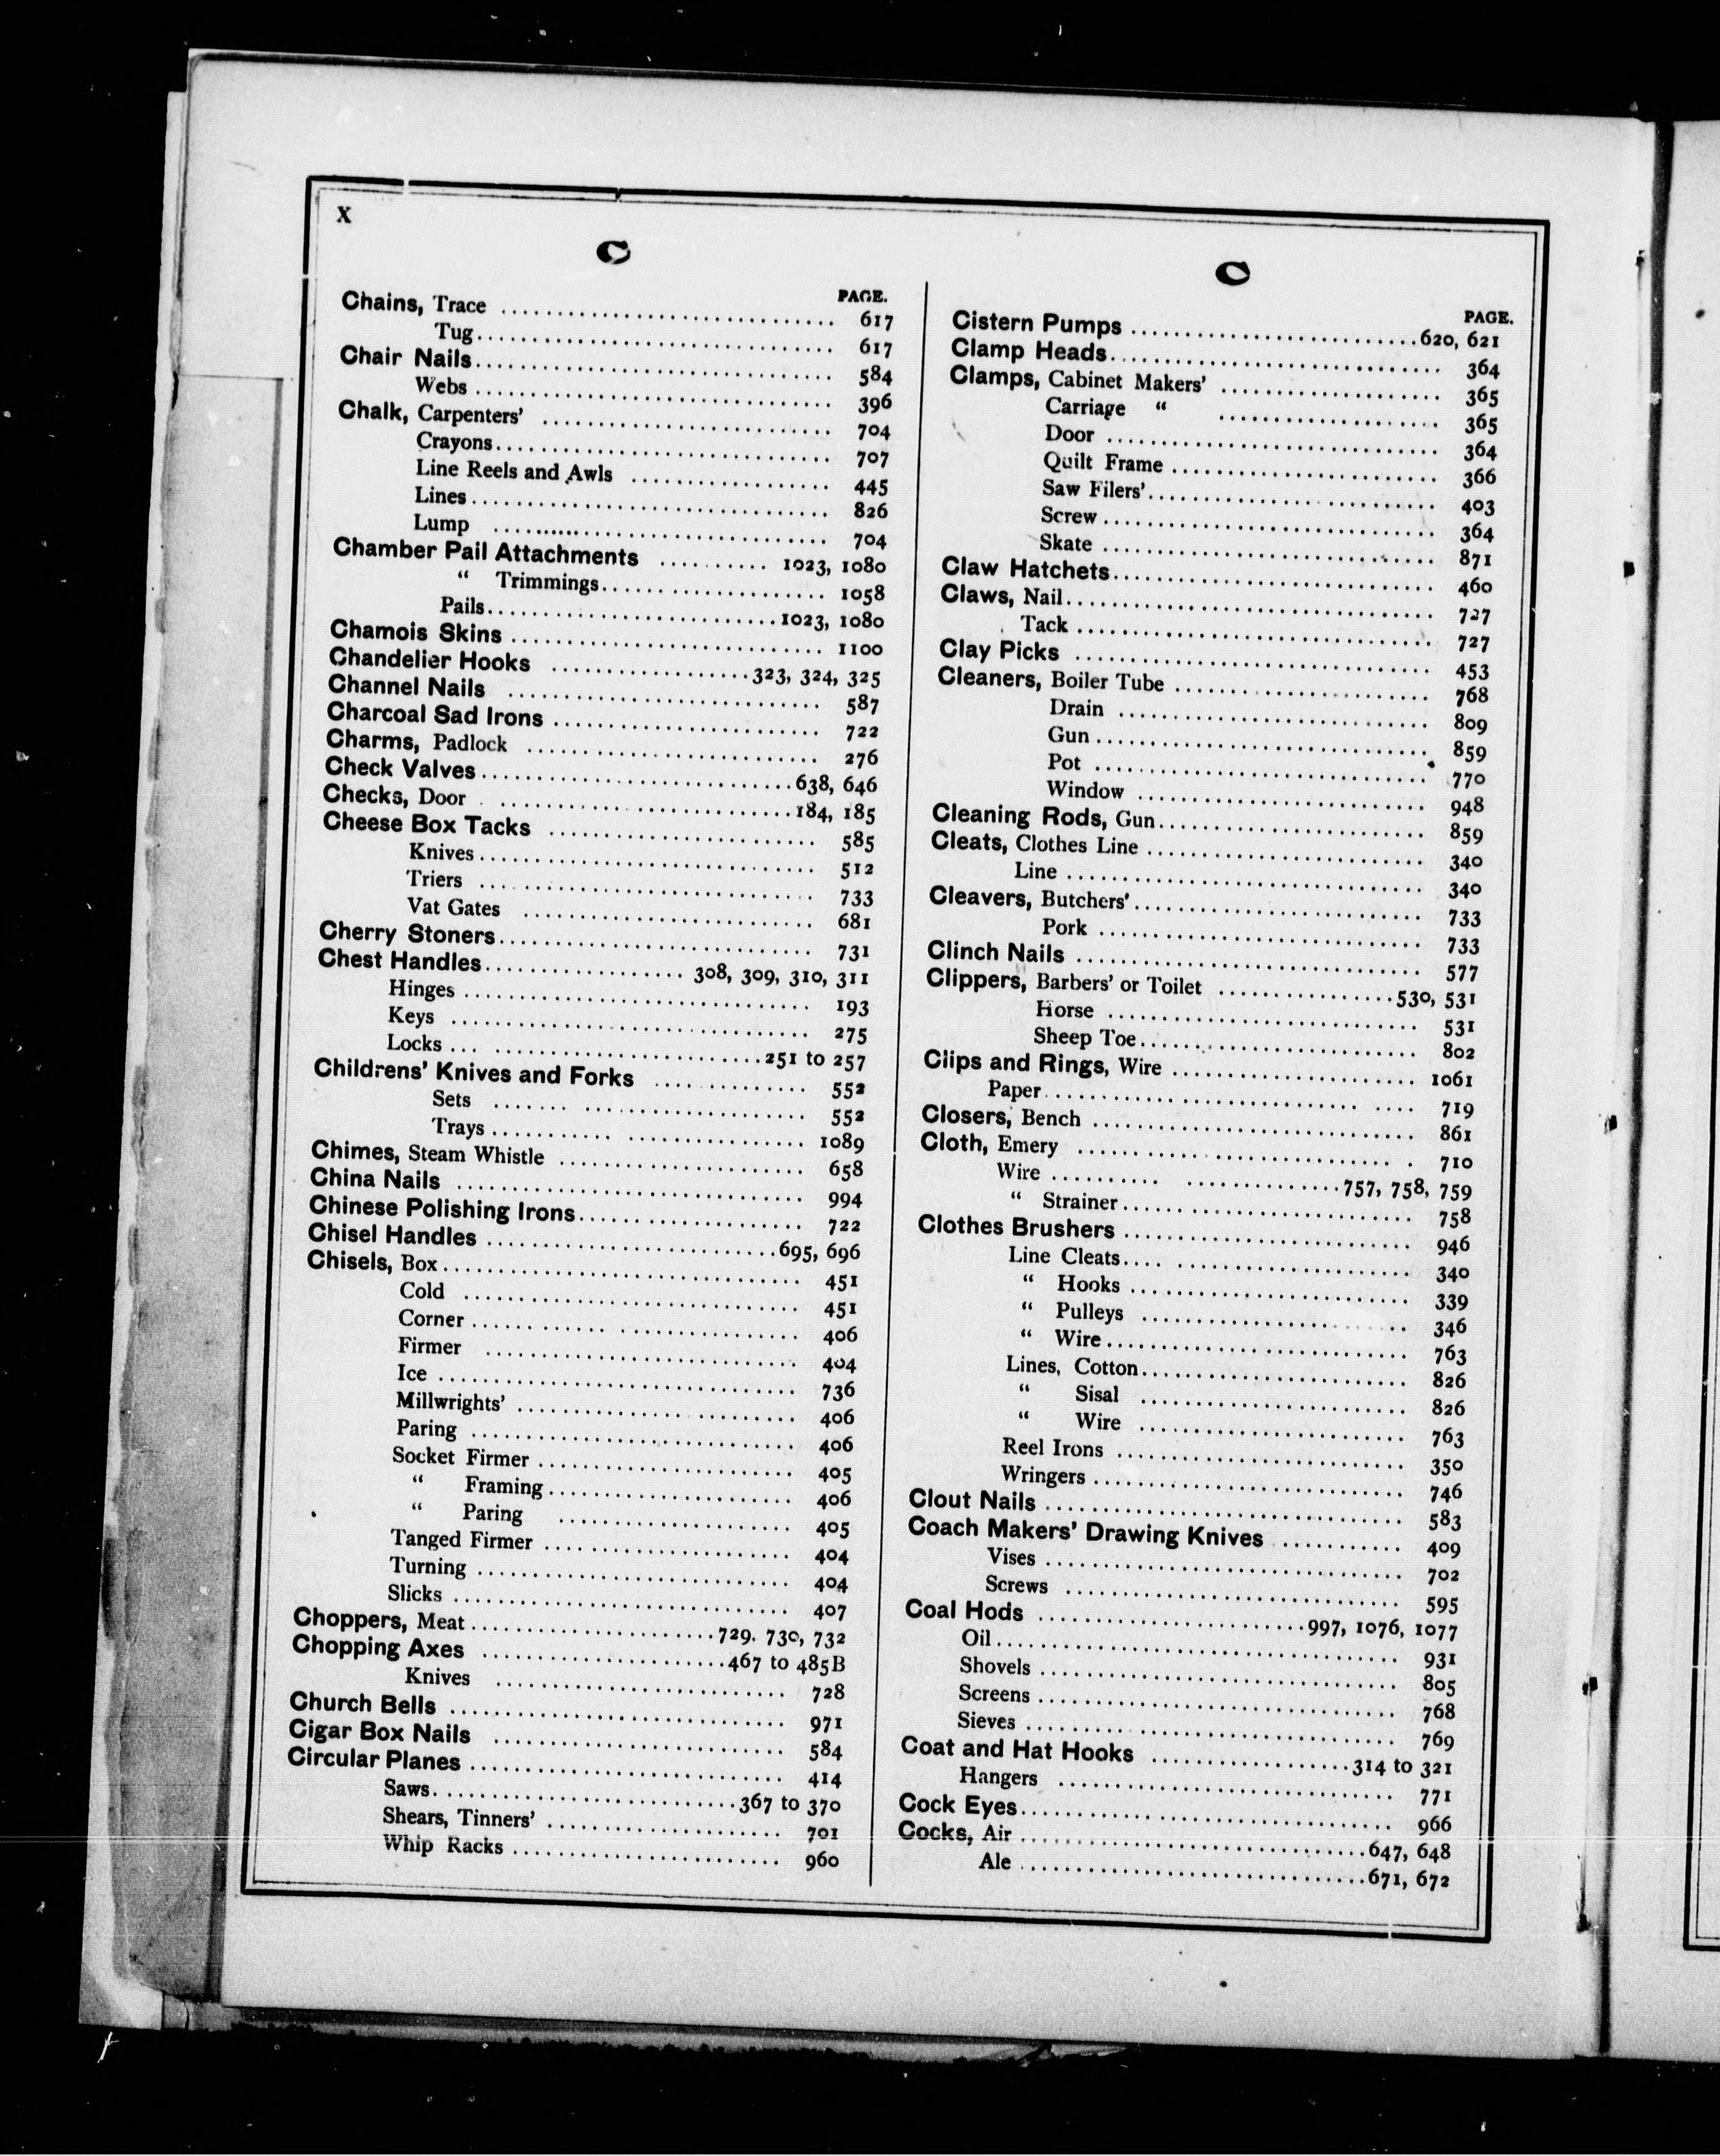 X
C
PAGE.
Chains, Trace .............................. 617
Tug................................. 617
Chair Nails................................. 584
Webs ................................. 396
Chalk, Carpenters' ........................... 704
Crayons............................... 707
Line Reels and Awls ................... 445
Lines................................. 826
Lump ............................... 704
Chamber Pail Attachments .......... 1023, 1080
“ Trimmings..................... 1058
Pails...........................1023, 1080
Chamois Skins ............................. 1100
Chandelier Hooks ...................323, 324, 325
Channel Nails ............................. 587
Charcoal Sad Irons ......................... 722
Charms, Padlock ........................... 276
Check Valves.............................638, 646
Checks, Door ...........................184, 185
Cheese Box Tacks ......................... 585
Knives............................... 512
Triers ............................... 733
Vat Gates ........................... 681
Cherry Stoners............................. 731
Chest Handles................... 308, 309, 310, 311
Hinges ................................. 193
Keys ................................. 275
Locks ... .........................251 to 257
Childrens' Knives and Forks .............. 552
Sets ....... ..................... 552
Trays ........... ................. 1089
Chimes, Steam Whistle ....................... 658
China Nails ................................. 994
Chinese Polishing Irons..................... 722
Chisel Handles ...........................695, 696
Chisels, Box................................. 451
Cold ............................... 451
Corner ............. ................. 406
Firmer ............................. 404
Ice ................................. 736
Millwrights' ......................... 406
Paring ............................... 406
Socket Firmer ....................... 405
“ Framing....................... 406
“ Paring ..................... 405
Tanged Firmer ....................... 404
Turning ............................. 404
Slicks ............................... 407
Choppers, Meat.......................729. 730, 732
Chopping Axes .......................467 to 485B
Knives ........................... 728
Church Bells ............................... 971
Cigar Box Nails ........................... 584
Circular Planes ............................. 414
Saws.............................367 to 370
Shears, Tinners' ..................... 701
Whip Racks ......................... 960
C
PAGE.
Cistern Pumps ...........................620, 621
Clamp Heads............................... 364
Clamps, Cabinet Makers' ..................... 365
Carriage “ ..................... 365
Door ............................... 364
Quilt Frame ......................... 366
Saw Filers'........................... 403
Screw............................... 364
Skate ............................... 871
Claw Hatchets............................... 460
Claws, Nail................................. 727
Tack ................................. 727
Clay Picks ................................. 453
Cleaners, Boiler Tube ....................... 768
Drain ............................. 809
Gun ............................... 859
Pot ............................... 770
Window ........................... 948
Cleaning Rods, Gun......................... 859
Cleats, Clothes Line ......................... 340
Line ................................. 340
Cleavers, Butchers'........................... 733
Pork ............................... 733
Clinch Nails ............................... 577
Clippers, Barbers' or Toilet .................530, 531
Horse ............................. 531
Sheep Toe......................... 802
Clips and Rings, Wire ....................... 1061
Paper............................. .... 719
Closers, Bench ............................. 861
Cloth, Emery ............................. . 710
Wire ........... ...............757, 758, 759
“ Strainer........................... 758
Clothes Brushers ........................... 946
Line Cleats.... ..................... 340
“ Hooks ......................... 339
“ Pulleys ....................... 346
“ Wire........................... 763
Lines, Cotton......................... 826
“ Sisal ....................... 826
“ Wire ....................... 763
Reel Irons ........................... 350
Wringers ............................. 746
Clout Nails ................................. 583
Coach Makers' Drawing Knives ........... 409
Vises ................................. 702
Screws ............................... 595
Coal Hods .........................997, 1076, 1077
Oil..................................... 931
Shovels ................................. 805
Screens ................................. 768
Sieves ................................. 769
Coat and Hat Hooks ...................314 to 321
Hangers ............................... 771
Cock Eyes................................... 966
Cocks, Air .................................647, 648
Ale .................................671, 672